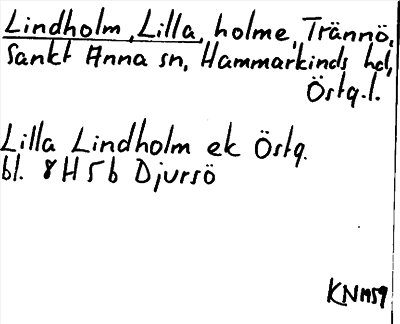 Lindholm, Lilla, holme, Trännö,
Sankt Anna sn, Hammarkinds hd,
Östg.l.
Lilla Lindholm ek Östg.
bl. 8H5b Djursö
KNM59